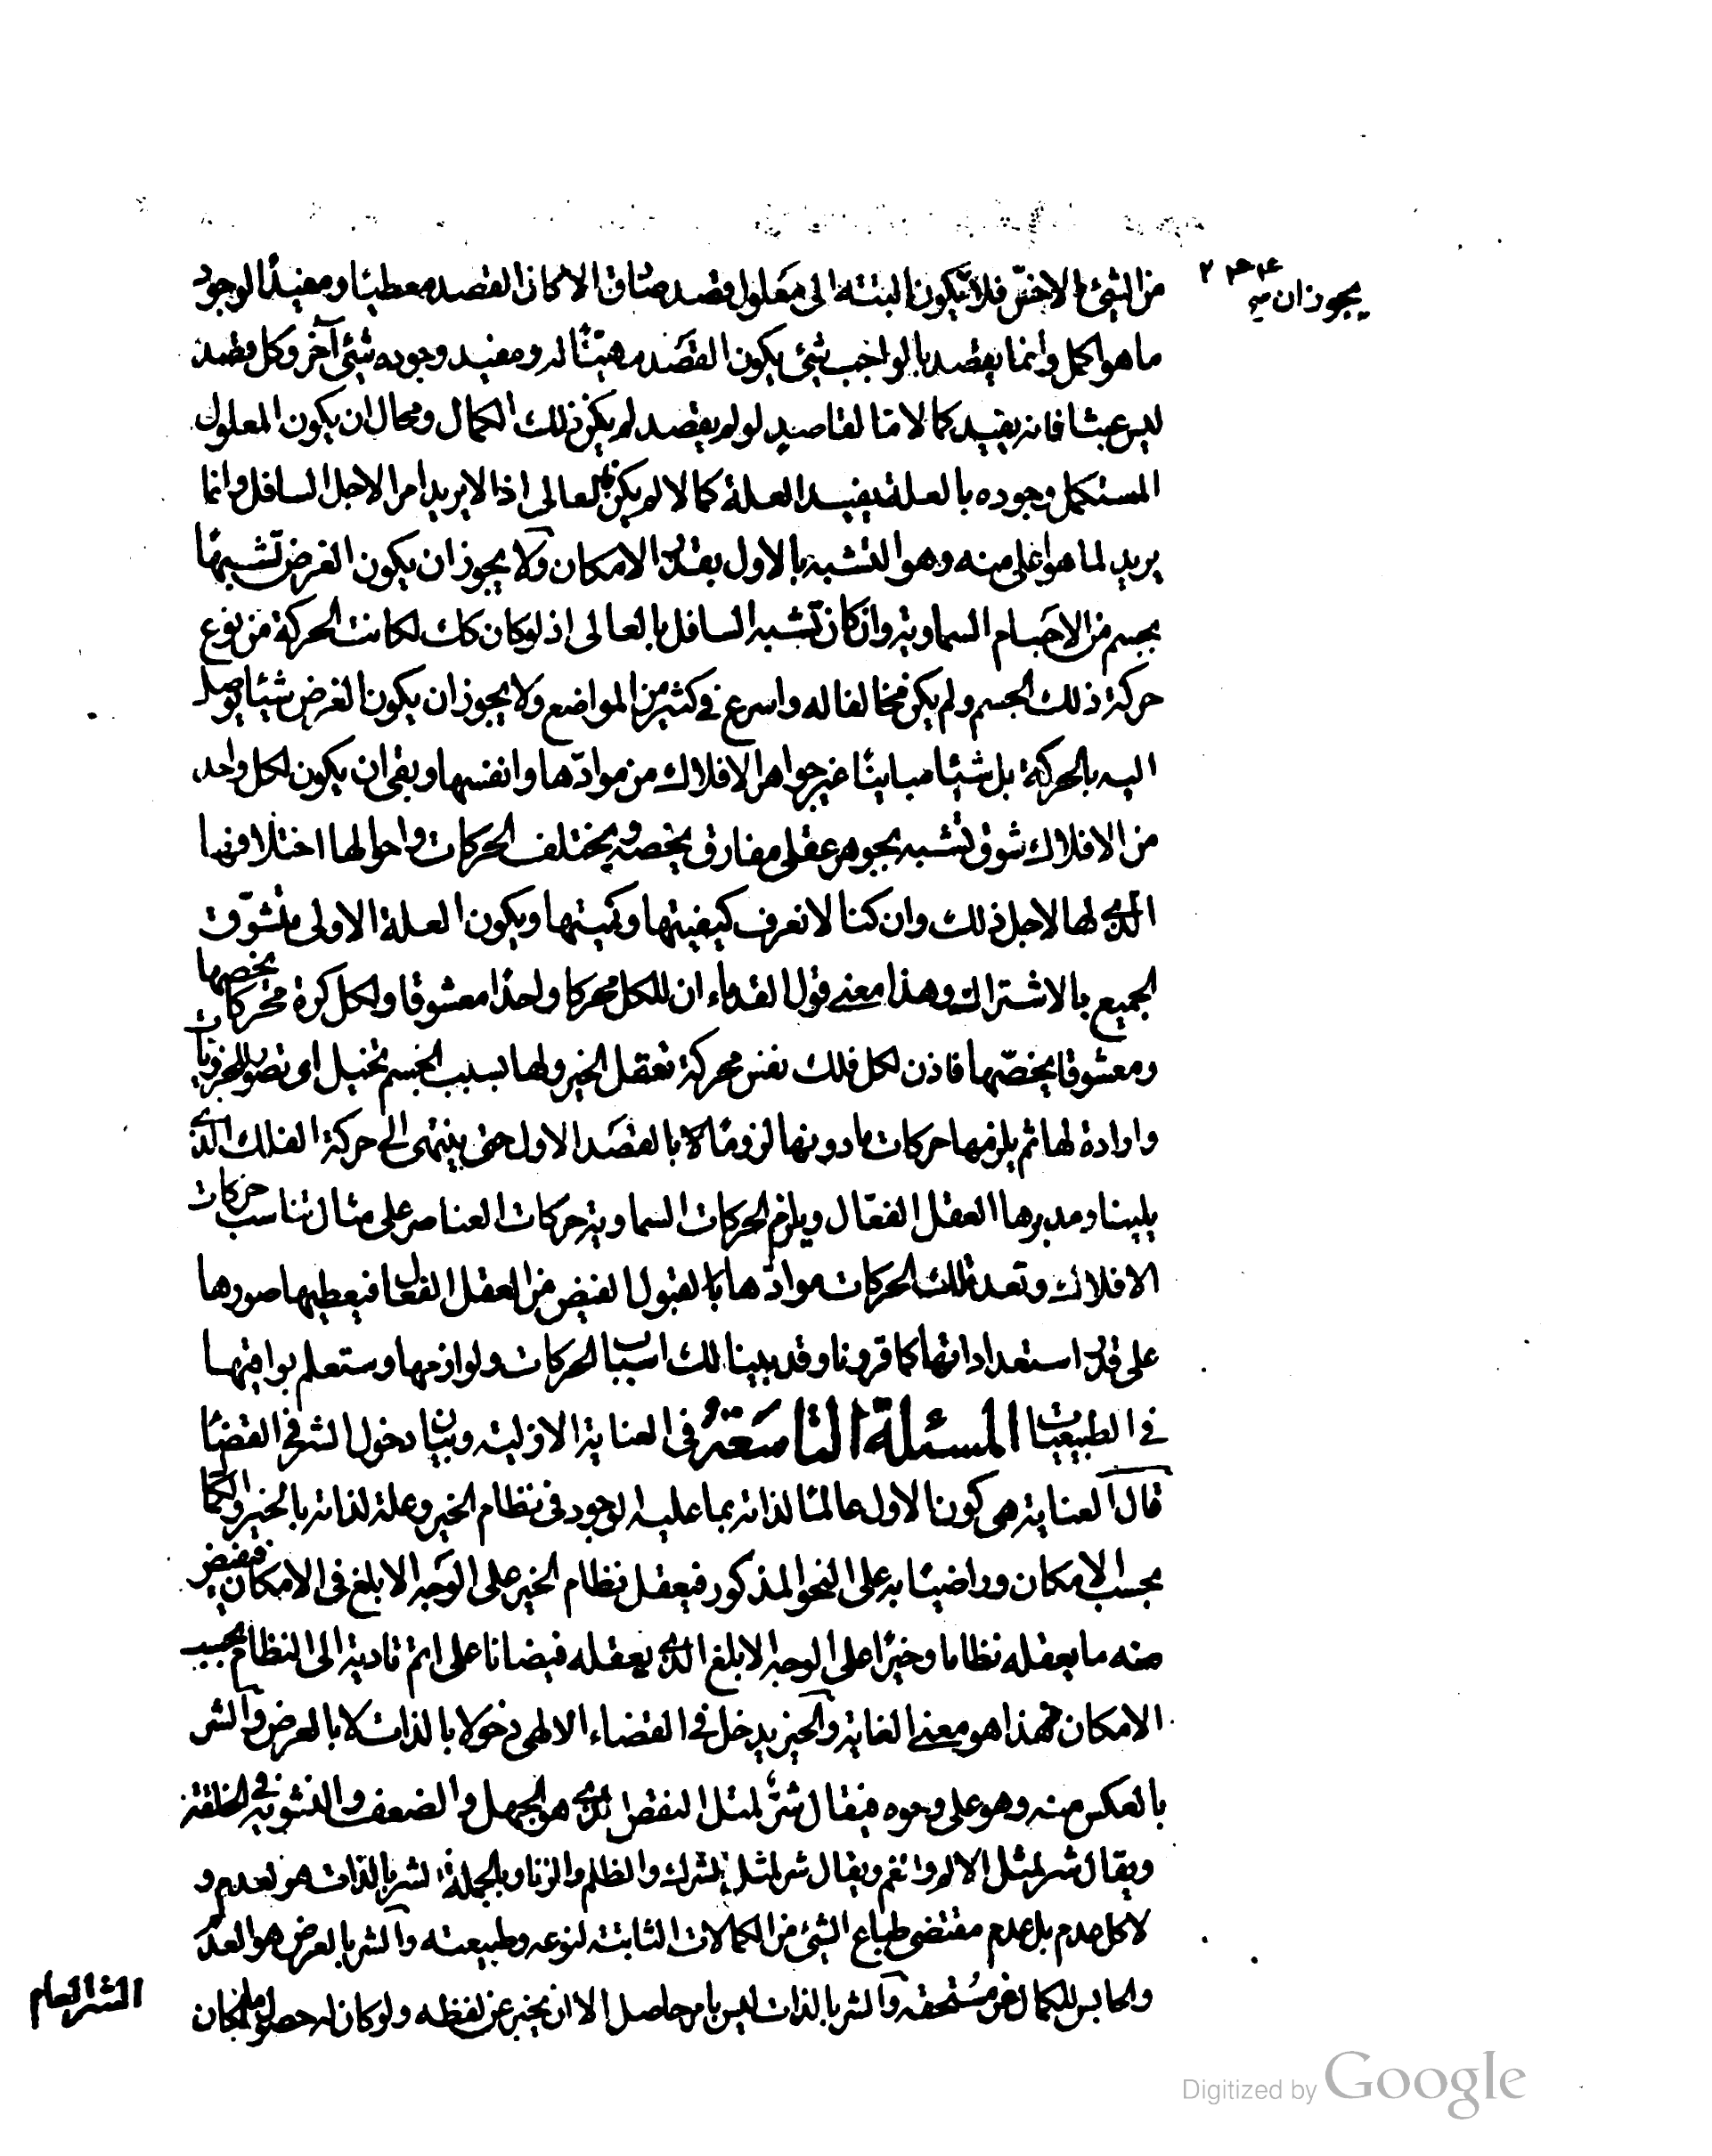 من الشئ الاخس فلا يكون البتة الى معلول قصد صادق الا كان القصد معطيا ومفيدا لوجود
يجوز ان
ما هو اكمل وانما يقصد بالواجب شئ يكون القصد مهيئا له ومفيد وجوده شئ آخر وكل قصد
ليس عبثا فانه يفيد كمالا ما لقاصد لو لم يقصد لم يكن ذلك الكمال ومحال ان يكون المعلول
المستكمل وجوده بالعلة يفيد العلة كمالا لم يكن فالعالى اذا لا يريد امرا لاجل السافل وانما
يريد لما هو اعلى منه وهو التشبه بالاول بقدر الامكان ولا يجوز ان يكون الغرض تشبها
بجسم من الاجسام السماوية وان كان تشبه السافل بالعالى اذ لو كان كك لكانت الحركة من نوع
حركة ذلك الجسم ولم يكن مخالفا له واسرع فى كثير من المواضع ولا يجوز ان يكون الغرض شيئا يوصل
اليه بالحركة بل شيئا مباينا غير جواهر الافلاك من موادّها وانفسها وبقى ان يكون لكل واحد
من الافلاك شوق تشبه بجوهر عقلى مفارق يخصه ويختلف الحركات واحوالها اختلافها
الذى لها لاجل ذلك وان كنا لا نعرف كيفيتها وكميتها ويكون العلة الاولى متشوّق
الجميع بالاشتراك وهذا معنى قول القدماء ان للكل محركا واحدا معشوقا ولكل كرة محركا يخصها
ومعشوقا يخصّها فاذن لكل فلك نفس محركة تعقل الخير ولها بسبب الجسم تخيل اى تصور للجزويات
وارادة لها ثم يلزمها حركات ما دونها لزوما لا بالقصد الاول حتى ينتهى الى حركة الفلك الذى
يلينا ومدبرها العقل الفعّال ويلزم الحركات السماوية حركات العناصر على مثال تناسب حركات
الافلاك وتعد تلك الحركات موادّها لقبول الفيض من العقل الفعال فيعطيها صورها
على قدر استعداداتها كما قررنا وقد بينا لك اسباب الحركات ولوازمها وستعلم بواقيها
فى الطبيعيات المسئلة التاسعة فى العناية الازلية وبيان دخول الشر فى القضا
قال العناية هى كون الاول عالما لذاته بما عليه الوجود فى نظام الخير وعلة لذاته بالخير والكمال
بحسب الامكان وراضيا به على النحو المذكور فيعقل نظام الخير على الوجه الابلغ فى الامكان فيفيض
منه ما يعقله نظاما وخيرا على الوجه الابلغ الذى يعقله فيضانا على اتم تادية الى النظام بحسب
الامكان فهذا هو معنى الغاية والخير يدخل فى القضاء الالهى دخولا بالذات لا بالعرض والشر
بالعكس منه وهو على وجوه فيقال شرّ لمثل النقص الذى هو الجهل والضعف والتشويه فى الخلقة
ويقال شر لمثل الالم والغم ويقال شر لمثل الشرك والظلم والزنا وبالجملة الشر بالذات هو العدم و
لا كل عدم بل عدم مقتضى طباع الشئ من الكمالات الثابتة لنوعه وطبيعته والشر بالعرض هو المعدم
والحابس للكمال عن مستحقه والشر بالذات ليس بامر حاصل الا ان يخبر عن لفظه ولو كان له حصول ما لكان
الشر العام
Digitized by Google